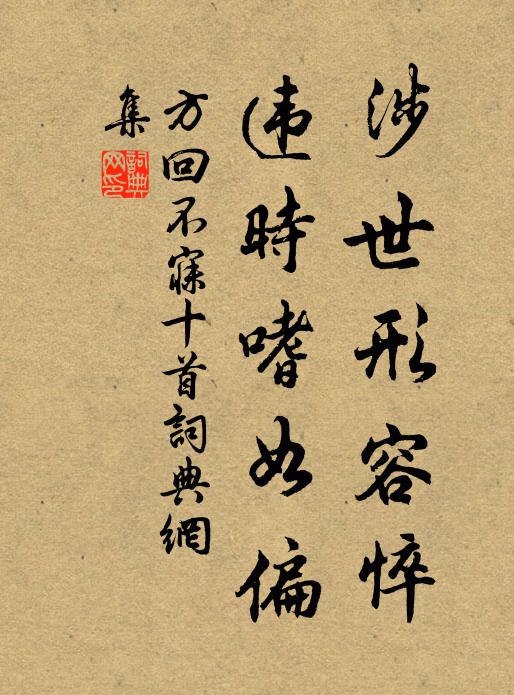 涉世形容悴
违時嗜好偏
方回不寐十首詞典網
集
詞典網印